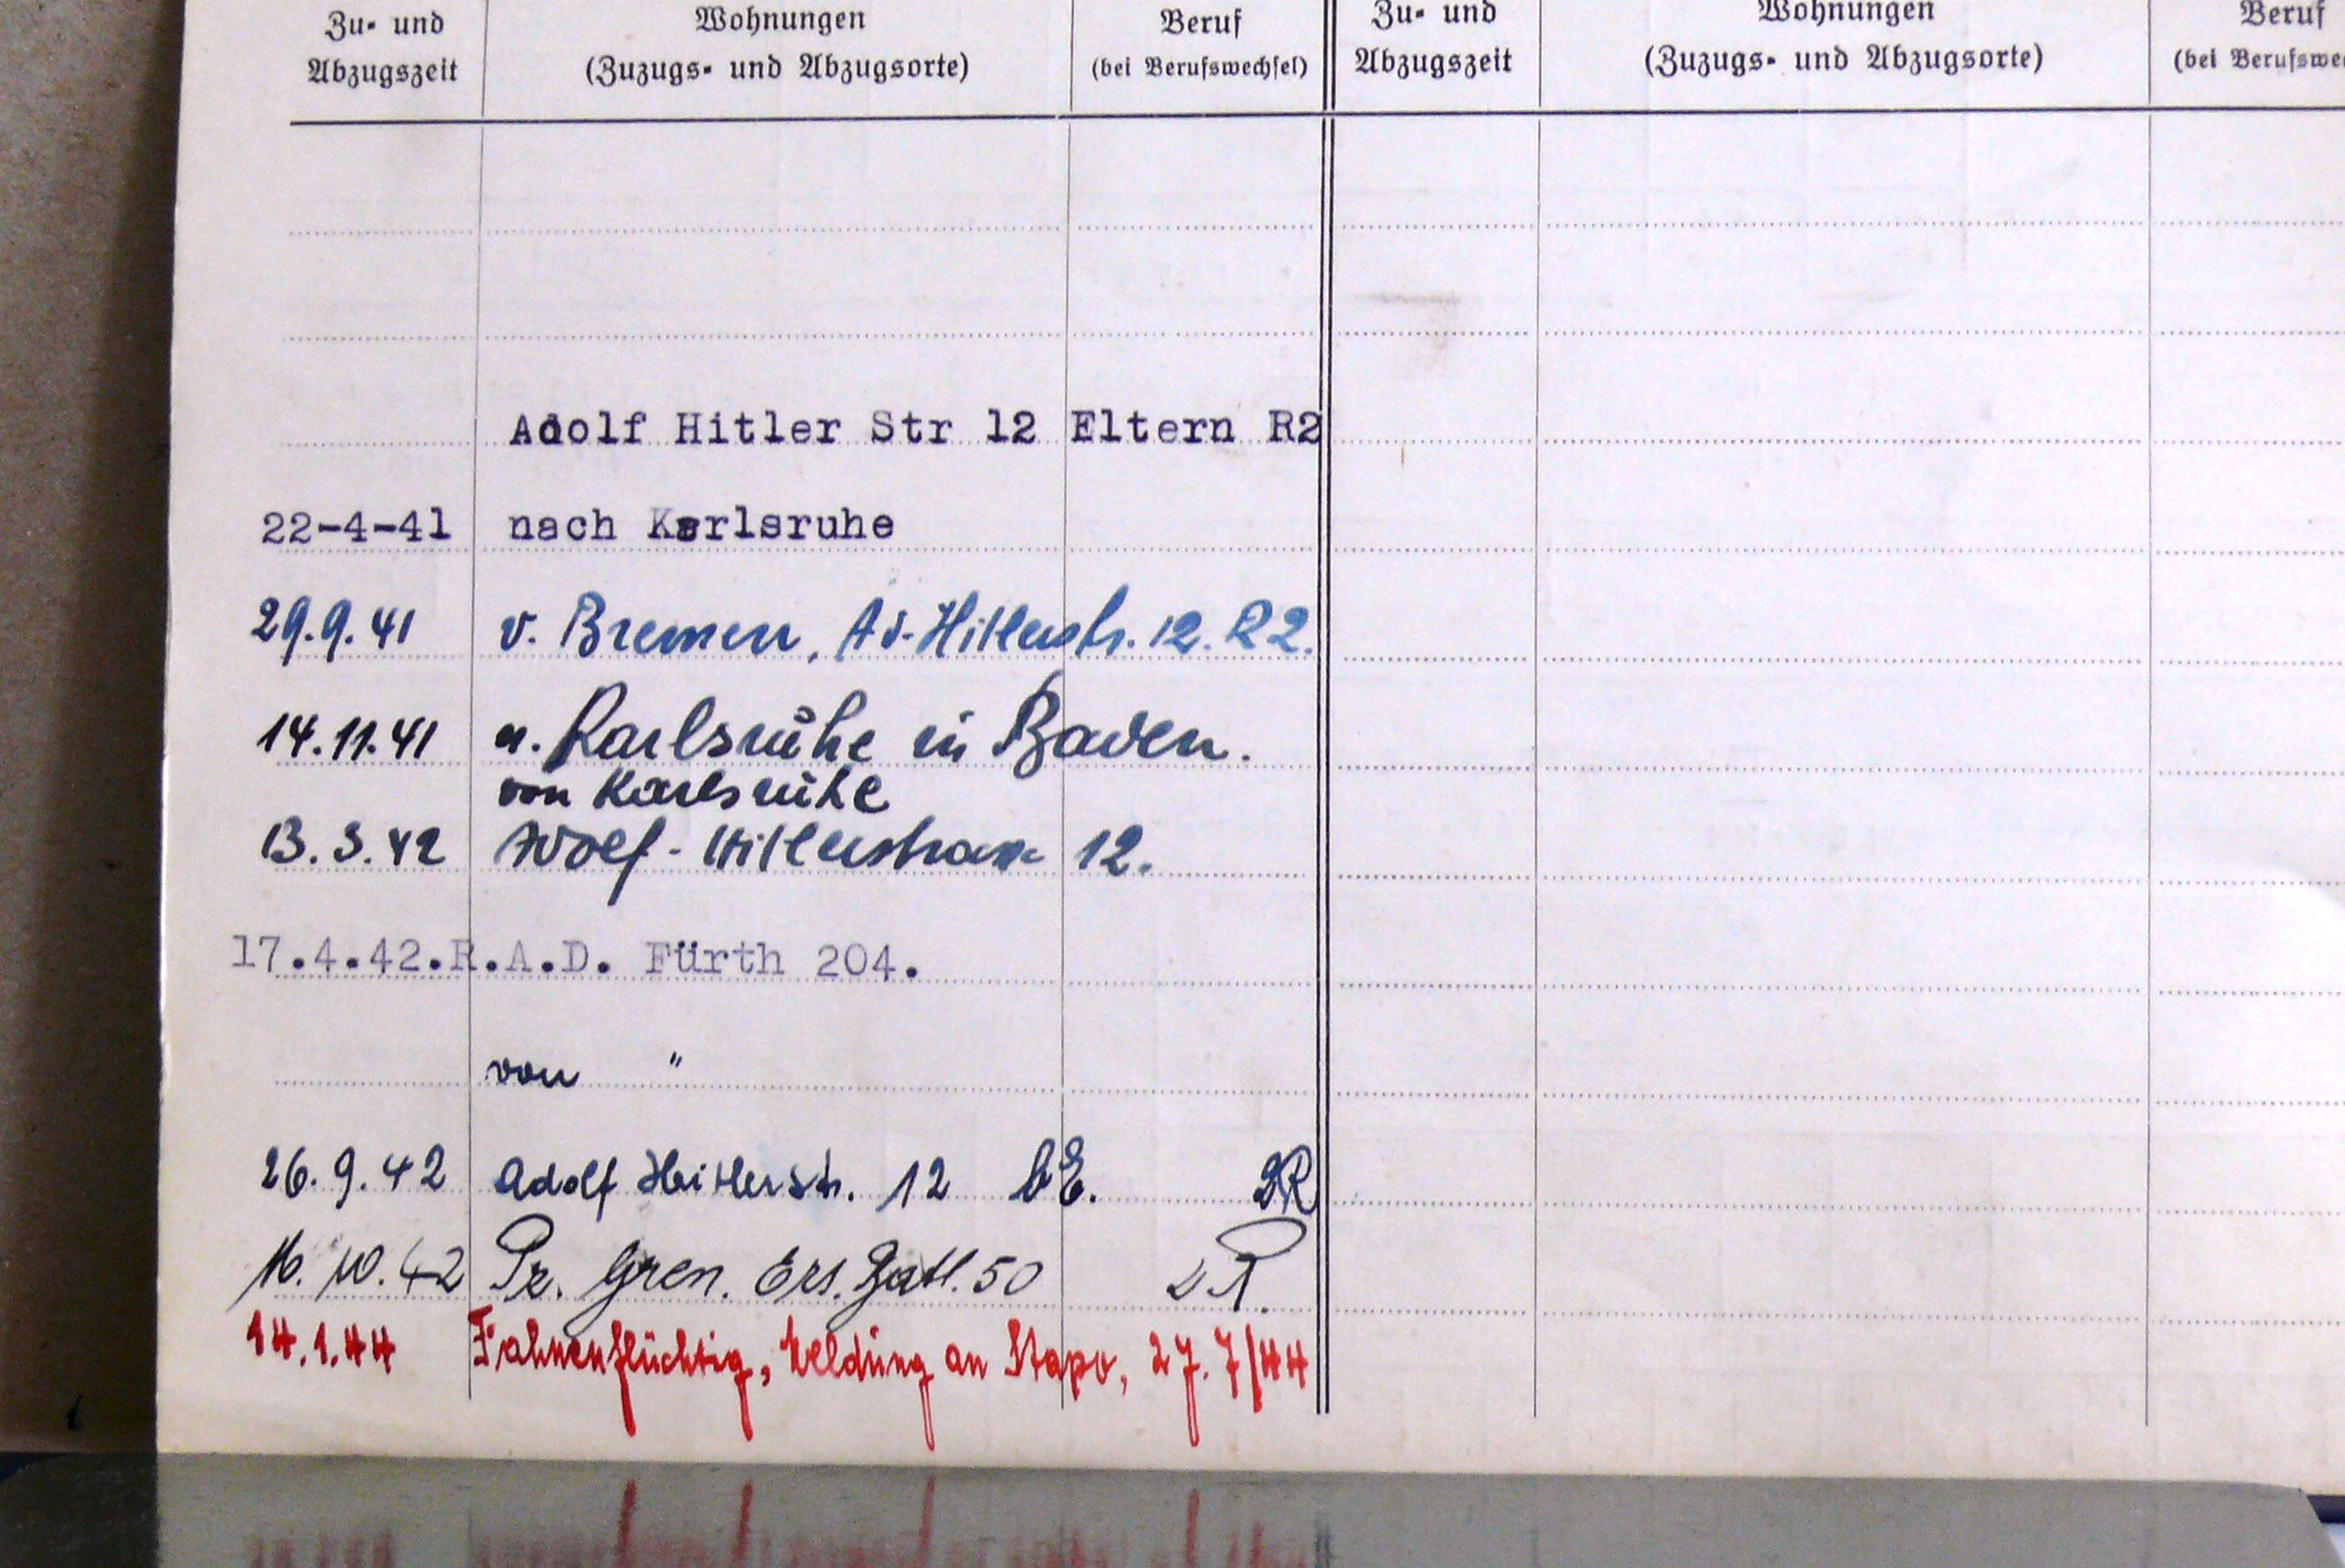 Zu- und Wohnungen Beruf Zu- und Wohnungen Beruf
Abzugszeit (Zuzugs- und Abzugsorte) (bei Berufswechsel) Abzugszeit (Zuzugs- und Abzugsorte) (bei Berufswe
Adolf Hitler Str 12 Eltern R2
22-4-41 nach Karlsruhe
29.9.41 v. Bremen, Ad-Hitlerstr. 12. R2.
14.11.41 n. Karlsruhe in Baden.
von Karlsruhe
13.3.42 Adolf-Hitlerstrasse 12.
17.4.42.R.A.D. Fürth 204.
von "
26.9.42 Adolf Hitlerstr. 12 b E. 2R
16.10.42 Pz. Gren. Ers. Batl. 50 2R.
14.1.44 Fahnenflüchtig, Meldung an Stapo, 27.7/44